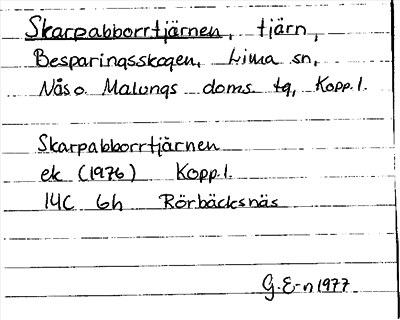 Skarpabborrtjärnen, tjärn,
Besparingsskogen, Lima sn,
Nås o. Malungs doms. tg, Kopp. l.
Skarpabborrtjärnen
ek (1976) Kopp. l.
14C 6h Rörbäcksnäs
G. E-n 1977